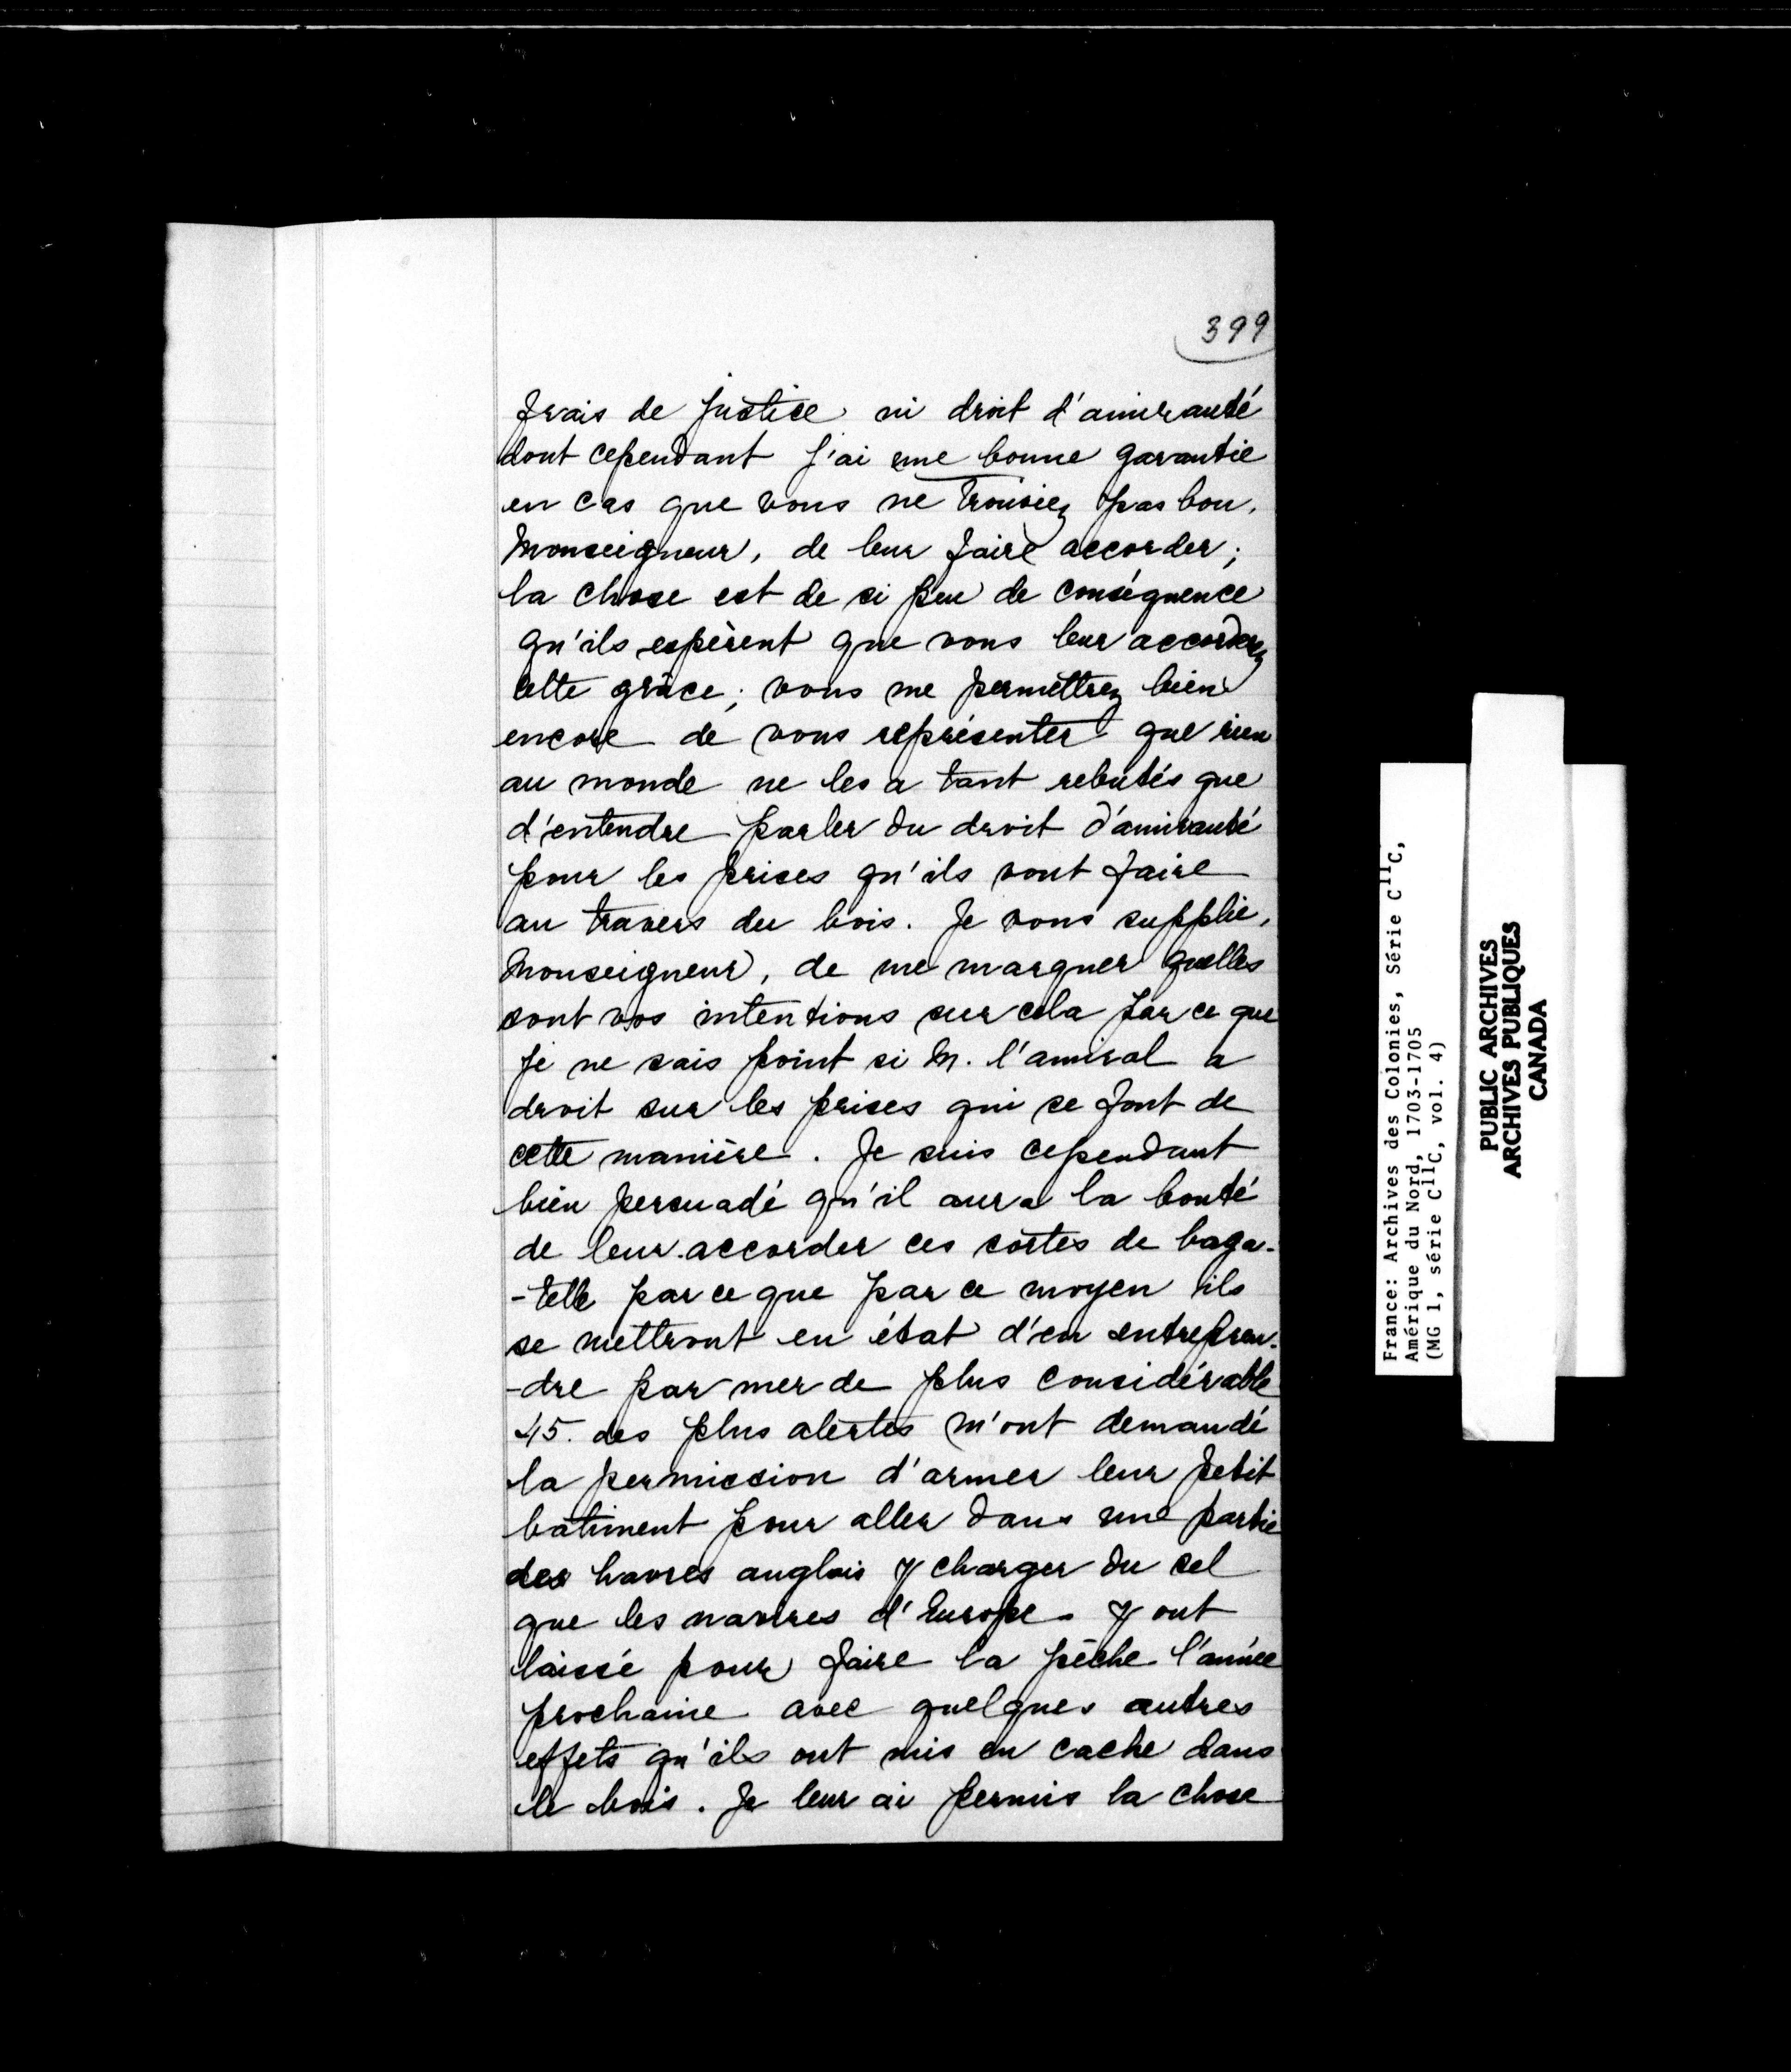 399
frais de justice ni droit d'amirauté
dont cependant j'ai une bonne garantie
en cas que vous ne trouviez pas bon,
Monseigneur, de leur faire accorder;
la chose est de si peu de conséquence
qu'ils espèrent que vous leur accorderez
cette grâce; vous me permettrez bien
encore de vous représenter que rien
au monde ne les a tant rebutés que
d'entendre parler du droit d'amirauté
pour les prises qu'ils vont faire
au travers du bois. Je vous supplie,
Monseigneur, de me marquer quelles
sont vos intentions sur cela par ce que
je ne sais point si M. l'amiral a
droit sur les prises qui se font de
cette manière. Je suis cependant
bien persuadé qu'il aura la bonté
de leur accorder ces sortes de baga-
-telle par ce que par ce moyen ils
se mettront en état d'en entrepren-
-dre par mer de plus considérable
45. des plus alertes m'ont demandé
la permission d'armer leur petit
bâtiment pour aller dans une partie
des havres anglois y charger du sel
que les navires d'Europe y ont
laissé pour faire la pêche l'année
prochaine avec quelques autres
effets qu'ils ont mis en cache dans
le bois. Je leur ai permis la chose
France: Archives des Colonies, Série C11C,
Amérique du Nord, 1703-1705
(MG 1, série C11C, vol. 4)
PUBLIC ARCHIVES
ARCHIVES PUBLIQUES
CANADA